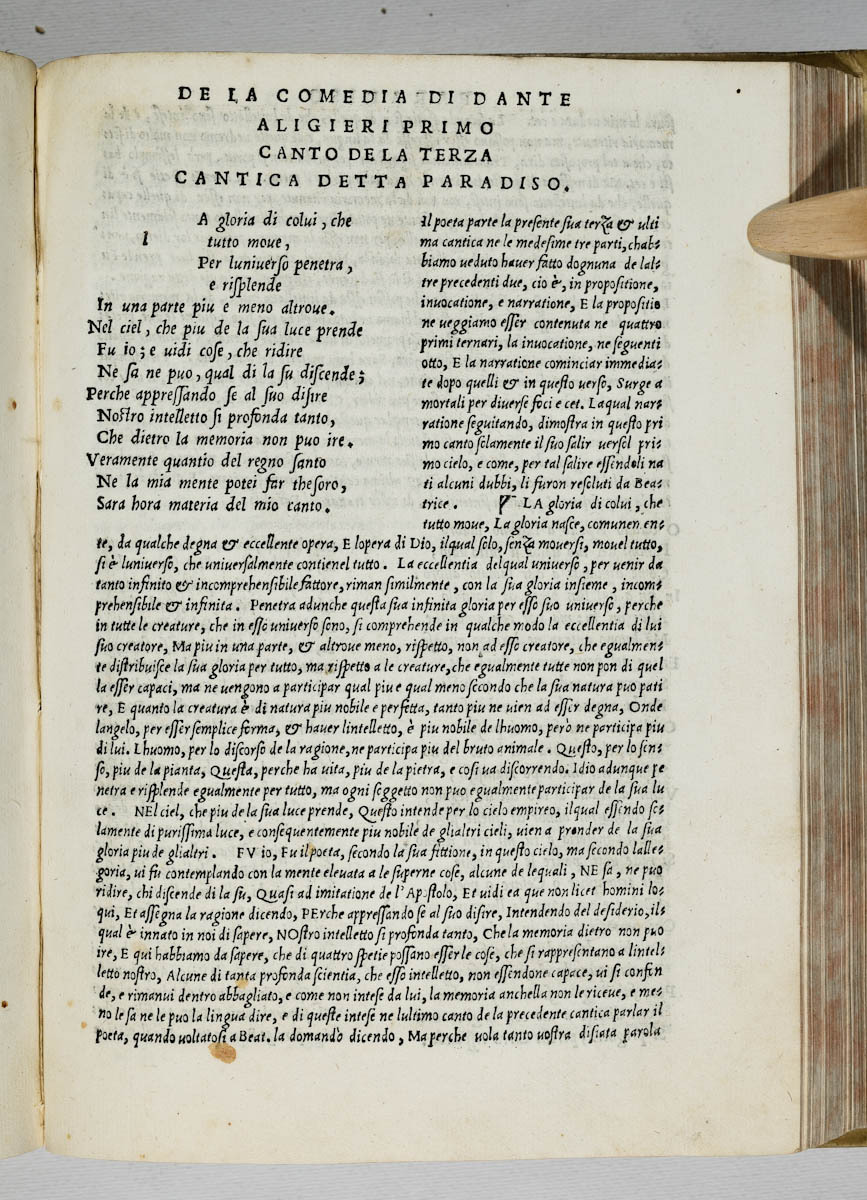 DE LA COMEDIA DI DANTE
ALIGIERI PRIMO
CANTO DE LA TERZA
CANTICA DETTA PARADISO.
l
A gloria di colui, che
tutto moue,
Per luniuerso penetra,
e risplende
In una parte piu e meno altroue.
Nel ciel, che piu de la sua luce prende
Fu io; e uidi cose, che ridire
Ne sa ne puo, qual di la su discende;
Perche appressando se al suo disire
Nostro intelletto si profonda tanto,
Che dietro la memoria non puo ire.
Veramente quantio del regno santo
Ne la mia mente potei far thesoro,
Sara hora materia del mio canto.
Il poeta parte la presente sua terza & ulti
ma cantica ne le medesime tre parti, chab-
biamo ueduto hauer fatto dognuna de lal-
tre precedenti due, cio è, in propositione,
inuocatione, e narratione, E la propositio
ne ueggiamo esser contenuta ne quattro
primi ternari, la inuocatione, ne seguenti
otto, E la narratione cominciar immedia-
te dopo quelli & in questo uerso, Surge a
mortali per diuerse foci e cet. La qual nar-
ratione seguitando, dimostra in questo pri
mo canto solamente il suo salir uersel pri-
mo cielo, e come, per tal salire essendoli na
ti alcuni dubbi, li furon resoluti da Bea-
trice. LA gloria di colui, che
tutto moue, La gloria nasce, comunemen-
te, da qualche degna & eccellente opera, E lopera di Dio, ilqual solo, senza mouersi, mouel tutto,
si è luniuerso, che uniuersalmente contienel tutto. La eccellentia delqual uniuerso, per uenir da
tanto infinito & incomprehensibile fattore, riman similmente, con la sua gloria insieme, incom-
prehensibile & infinita. Penetra adunche questa sua infinita gloria per esso suo uniuerso, perche
in tutte le creature, che in esso uniuerso sono, si comprehende in qualche modo la eccellentia di lui
suo creatore, Ma piu in una parte, & altroue meno, rispetto, non ad esso creatore, che egualmen-
te distribuisce la sua gloria per tutto, ma rispetto a le creature, che egualmente tutte non pon di quel
la esser capaci, ma ne uengono a participar qual piu e qual meno secondo che la sua natura puo pati
re, E quanto la creatura è di natura piu nobile e perfetta, tanto piu ne uien ad esser degna, Onde
langelo, per esser semplice forma, & hauer lintelletto, è piu nobile de lhuomo, però ne participa piu
di lui. Lhuomo, per lo discorso de la ragione, ne participa piu del bruto animale. Questo, per lo sen-
so, piu de la pianta, Questa, perche ha uita, piu de la pietra, e cosi ua discorrendo. Idio adunque pe
netra e risplende egualmente per tutto, ma ogni soggetto non puo egualmente participar de la sua lu
ce. NEl ciel, che piu de la sua luce prende, Questo intende per lo cielo empireo, ilqual essendo so-
lamente di purissima luce, e consequentemente piu nobile de glialtri cieli, uien a prender de la sua
gloria piu de glialtri. FV io, Fu il poeta, secondo la sua fittione, in questo cielo, ma secondo lalle-
goria, ui fu contemplando con la mente eleuata a le superne cose, alcune de lequali, NE sa, ne puo
ridire, chi discende di la su, Quasi ad imitatione de l'Apostolo, Et uidi ea que non licet homini lo-
qui, Et assegna la ragione dicendo, PErche appressando se al suo disire, Intendendo del desiderio, il-
qual è innato in noi di sapere, NOstro intelletto si profonda tanto, Che la memoria dietro non puo
ire, E qui habbiamo da sapere, che di quattro spetie possano esser le cose, che si rappresentano a lintel-
letto nostro, Alcune di tanta profonda scientia, che esso intelletto, non essendone capace, ui si confon
de, e rimanui dentro abbagliato, e come non intese da lui, la memoria anchella non le riceue, e me-
no le sa ne le puo la lingua dire, e di queste intese ne lultimo canto de la precedente cantica parlar il
poeta, quando uoltatosi a Beat. la domandò dicendo, Ma perche uola tanto uostra disiata parola